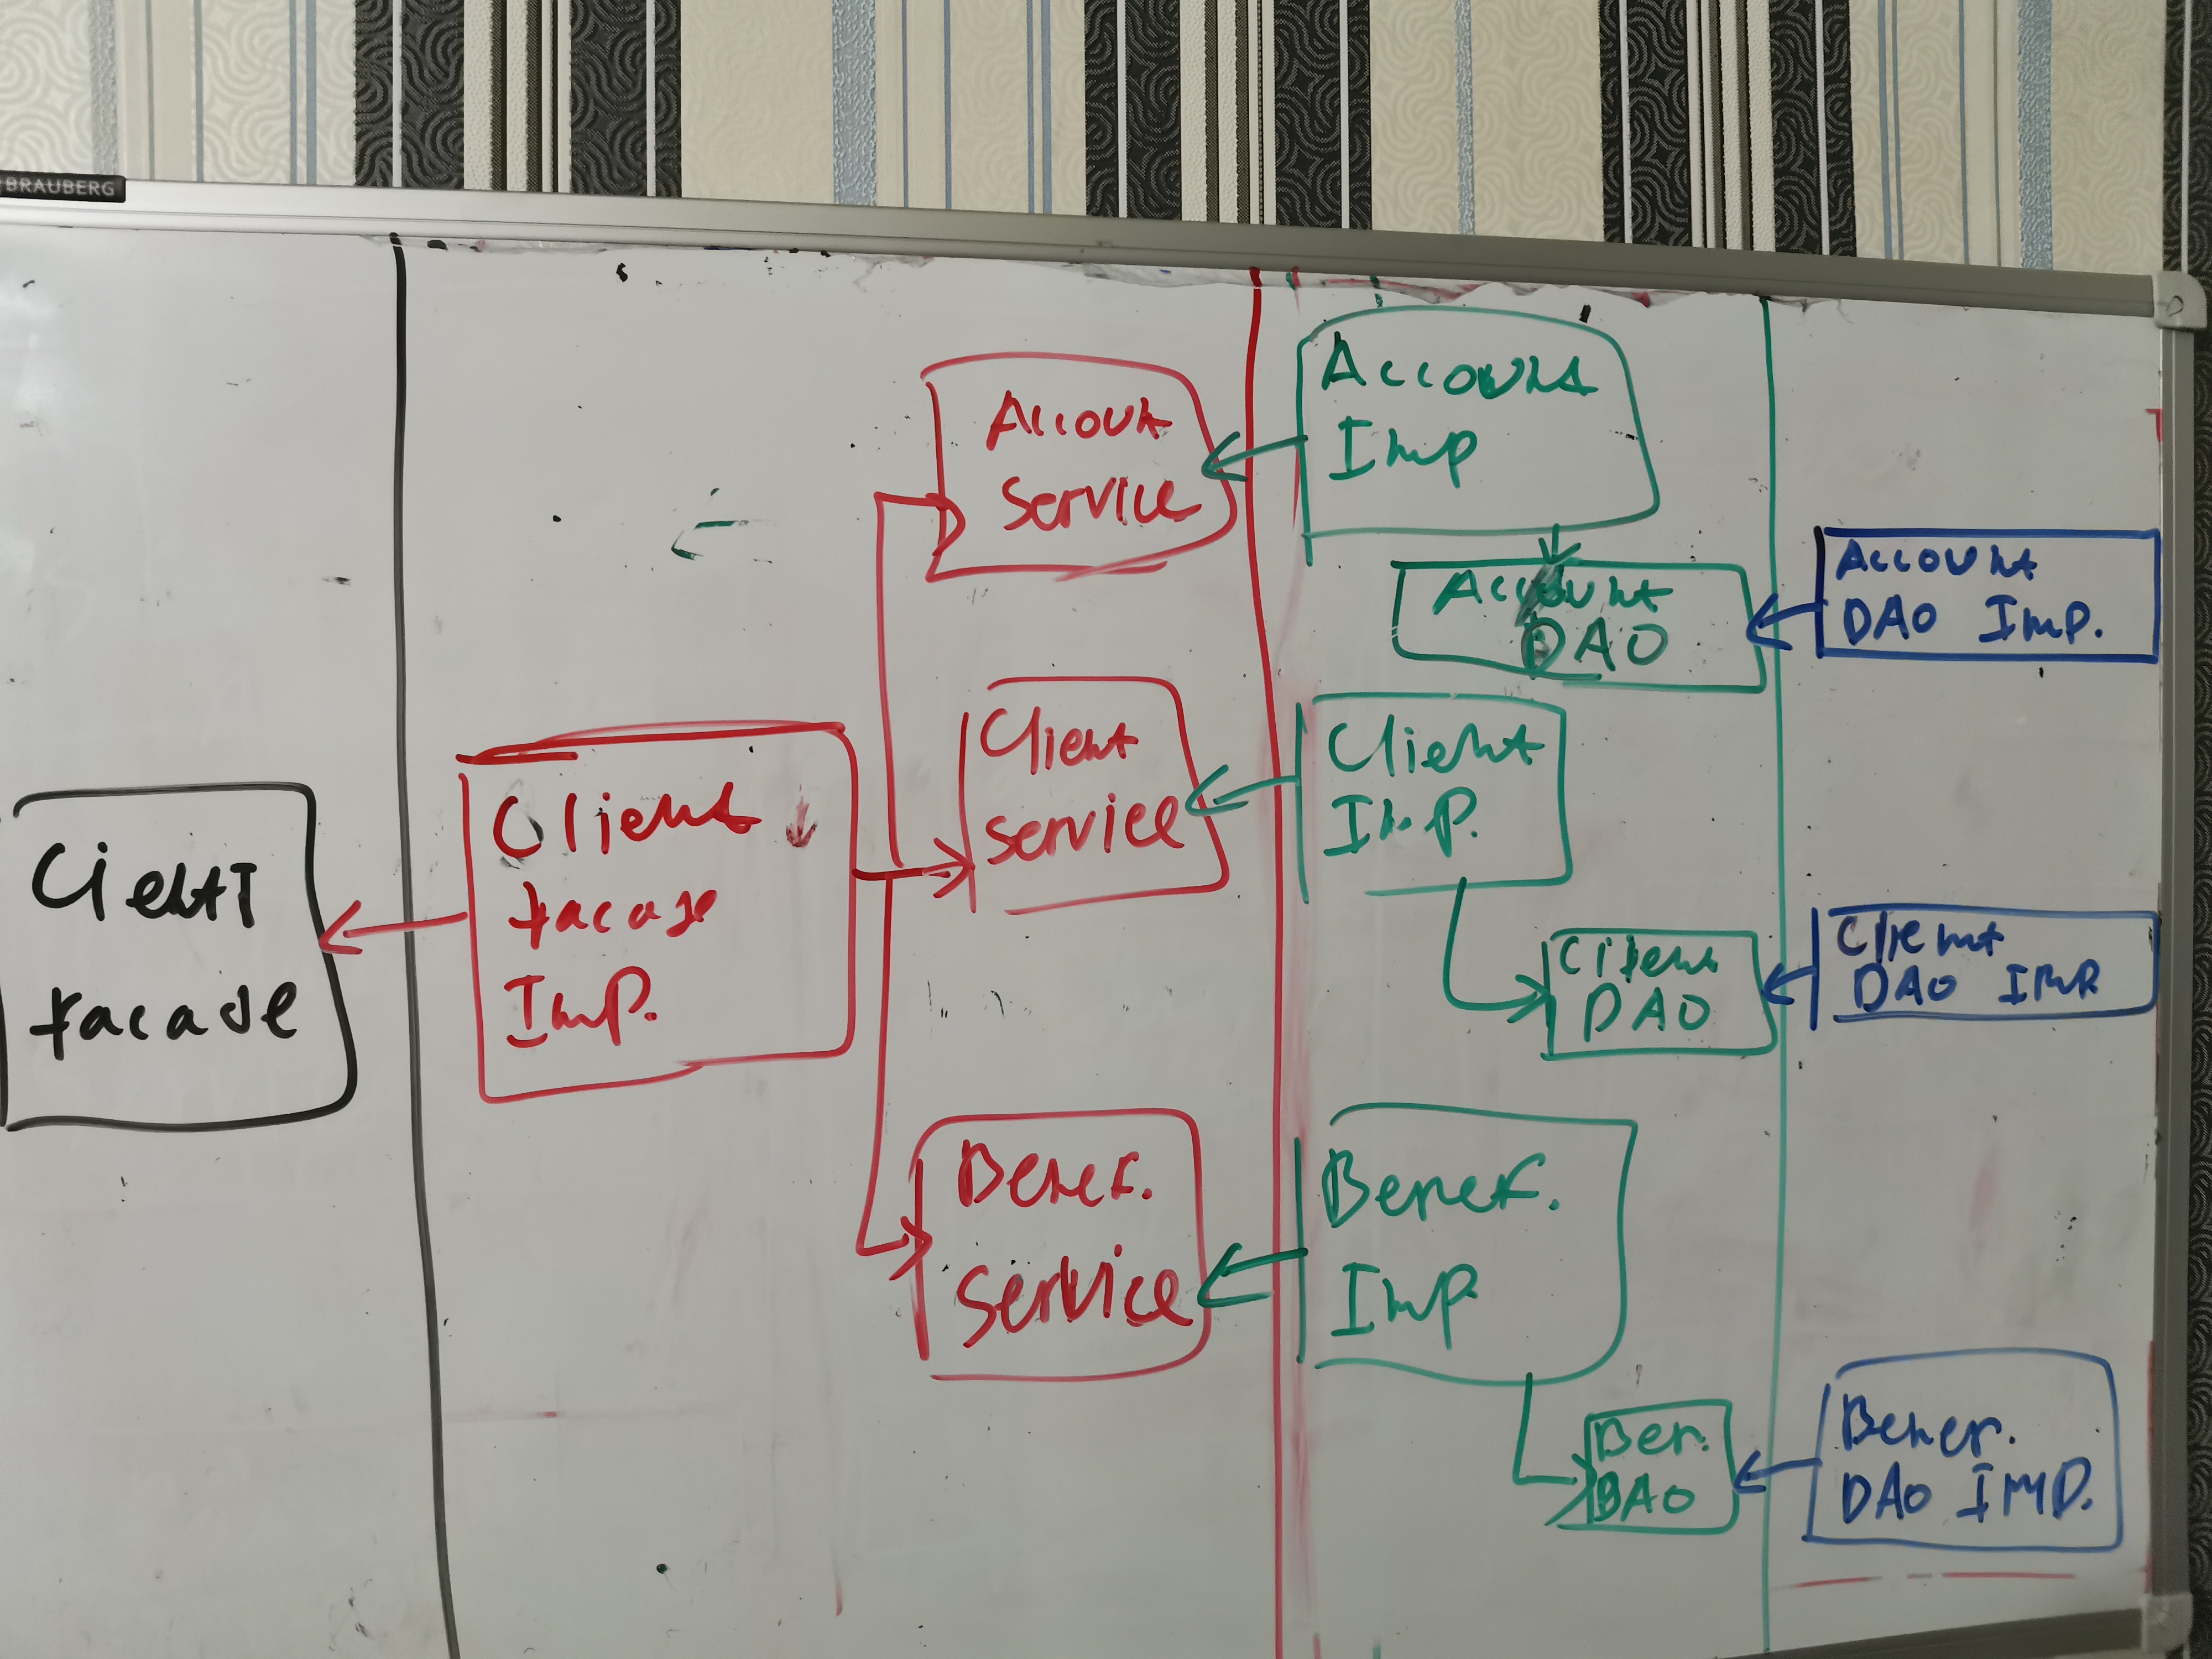 BRAUBERG
Client
facade
Client
facade
Imp.
Account
Service
Client
service
Benef.
Service
Account
Imp
Account
DAO
Client
Imp.
Client
DAO
Benef.
Imp
Ben.
DAO
Account
DAO Imp.
Client
DAO Imp
Benef.
DAO IMP.